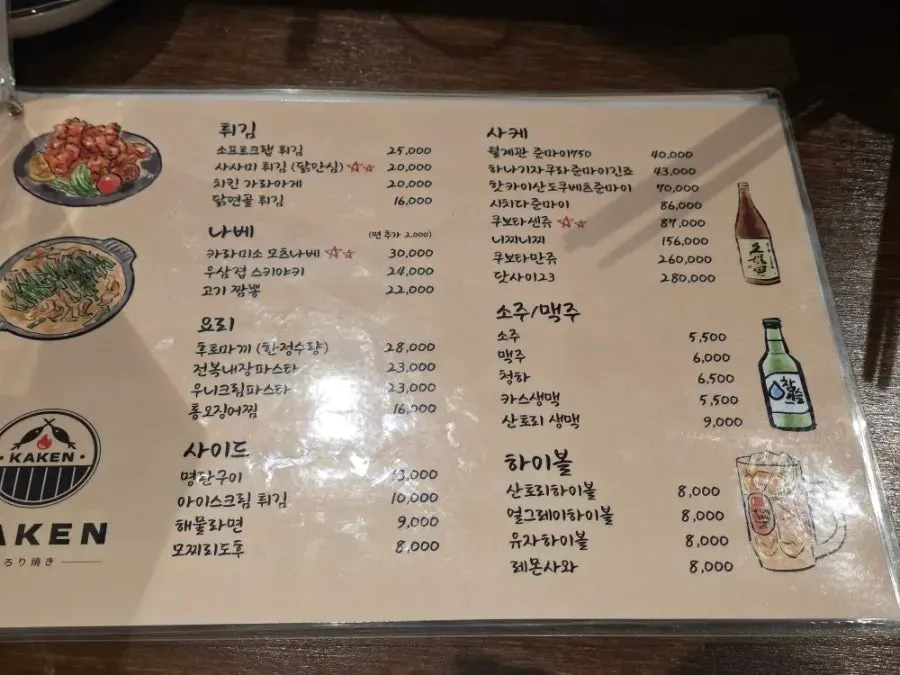 튀김
소프트크랩 튀김 25,000
사사미 튀김 (닭안심) 20,000
치킨 가라아게 20,000
닭연골 튀김 16,000
나베 (면 추가 2,000)
카라미소 모츠나베 30,000
우삼겹 스키야키 24,000
고기 짬뽕 22,000
요리
후토마끼 (한정수량) 28,000
전복내장파스타 23,000
우니크림파스타 23,000
통오징어찜 16,000
사이드
명란구이 13,000
아이스크림 튀김 10,000
해물라면 9,000
모찌리도후 8,000
KAKEN
AKEN
ろり焼き
사케
월계관 준마이750 40,000
하나기자쿠라준마이긴죠 43,000
핫카이산도쿠베츠준마이 70,000
시치다준마이 86,000
쿠보타센쥬 87,000
니찌니찌 156,000
쿠보타만쥬 260,000
닷사이23 280,000
소주/맥주
소주 5,500
맥주 6,000
청하 6,500
카스생맥 5,500
산토리 생맥 9,000
하이볼
산토리하이볼 8,000
얼그레이하이볼 8,000
유자하이볼 8,000
레몬사와 8,000
久保田